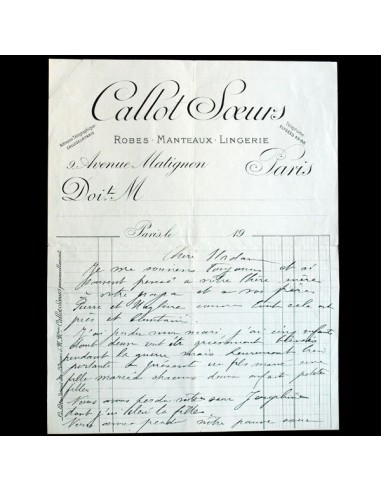 Callot Sœurs
Adresse Télégraphique
Téléphone
ROBES · MANTEAUX · LINGERIE
9, Avenue Matignon
Paris
Doit M
Paris, le 19
Chère Madame
Je me souviens toujours et ai
souvent pensé à votre chère mère
à votre papa et à vos frères
Pierre et comme tout cela est
près et lointain
J'ai perdu mon mari, j'ai cinq enfants
dont deux ont été grièvement blessés
pendant la guerre mais heureusement bien
portants à présent un fils et une
fille mariés chacun deux enfants petites
filles
Nous avons perdu notre sœur Joséphine
dont j'ai la fille
Nous avons perdu notre pauvre sœur